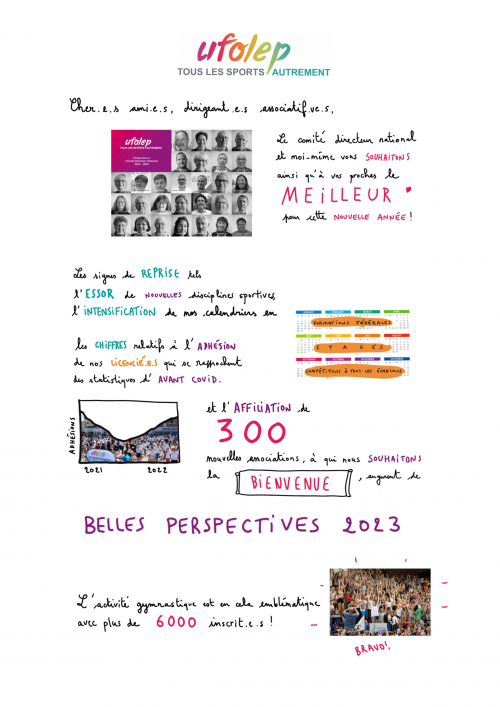 ufolep
TOUS LES SPORTS AUTREMENT
Cher.e.s ami.e.s, dirigeant.e.s associatif.ve.s,
ufolep
TOUS LES SPORTS AUTREMENT
Le comité directeur national
et moi-même vous SOUHAITONS
ainsi qu'à vos proches le
MEILLEUR
pour cette NOUVELLE ANNÉE !
Les signes de REPRISE tels
l'ESSOR de NOUVELLES disciplines sportives,
l'INTENSIFICATION de nos calendriers en
FORMATIONS FÉDÉRALES
STAGES
COMPÉTITIONS À TOUS LES ÉCHELONS
les CHIFFRES relatifs à l'ADHÉSION
de nos LICENCIÉ.E.S qui se rapprochent
des statistiques d'AVANT COVID.
ADHÉSIONS
2021 2022
et l'AFFILIATION de
300
nouvelles associations, à qui nous SOUHAITONS
la BIENVENUE, augurent de
BELLES PERSPECTIVES 2023
L'activité gymnastique est en cela emblématique
avec plus de 6000 inscrit.e.s !
BRAVO!